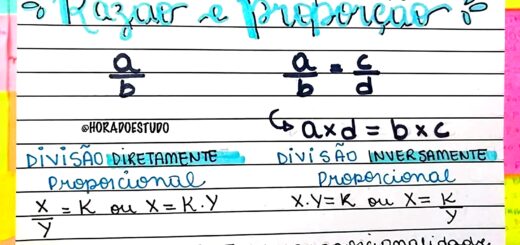 Razão e Proporção
a/b a/b = c/d
@HORADOESTUDO
a x d = b x c
DIVISÃO DIRETAMENTE
Proporcional
X/Y = K ou X = K.Y
DIVISÃO INVERSAMENTE
Proporcional
X.Y = K ou X = K/Y